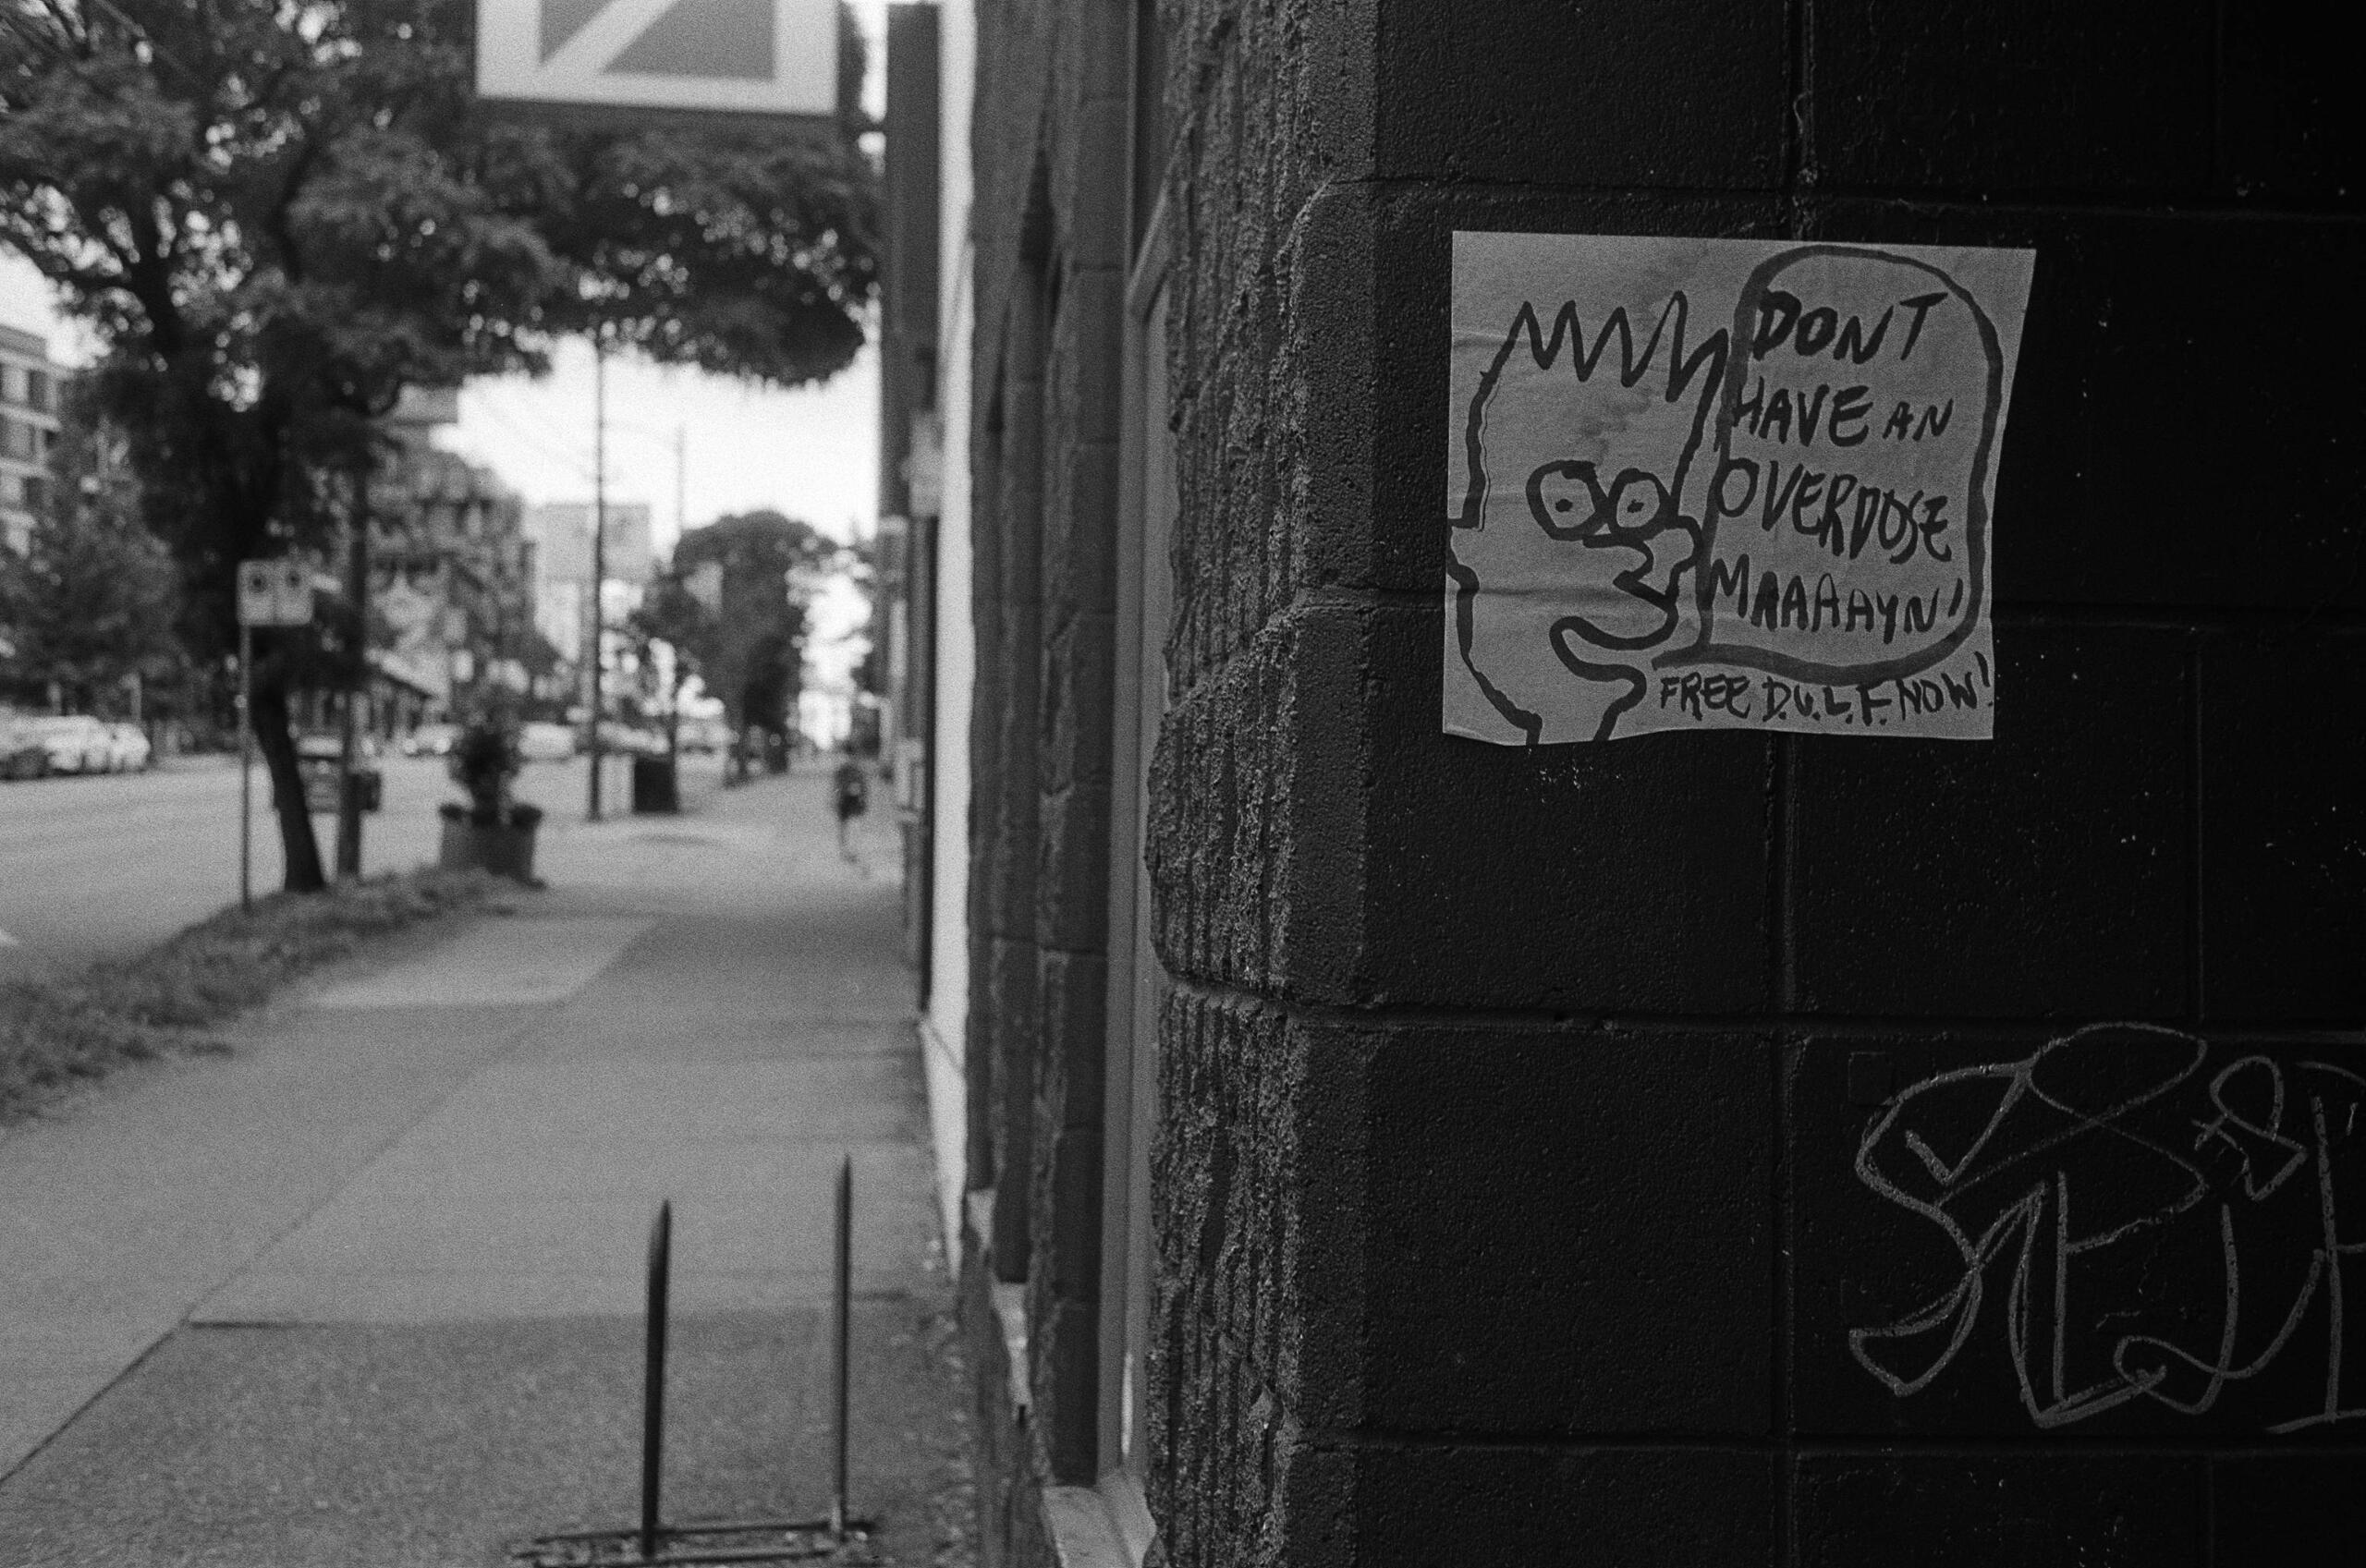 DONT
HAVE AN
OVERDOSE
MAAAAYN!
FREE D.U.L.F. NOW!